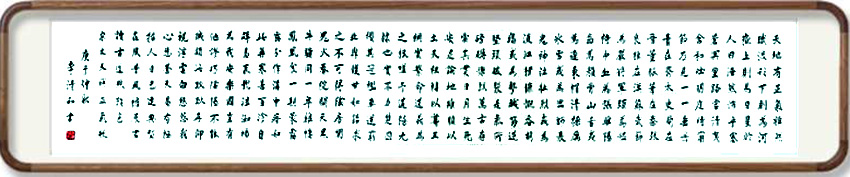 天地有正氣雜然
賦流形下則為河
嶽上則為日星於
人曰浩然沛乎塞
蒼冥皇路當清夷
含和吐明庭時窮
節乃見一一垂丹
青在齊太史簡在
晉董狐筆在秦張
良椎在漢蘇武節
為嚴將軍頭為嵇
侍中血為張睢陽
齒為顏常山舌或
為遼東帽清操厲
冰雪或為出師表
鬼神泣壯烈或為
渡江楫慷慨吞胡
羯或為擊賊笏逆
豎頭破裂是氣所
磅礴凜烈萬古存
當其貫日月生死
安足論地維賴以
立天柱賴以尊三
綱實繫命道義為
之根嗟予遘陽九
隸也實不力楚囚
纓其冠傳車送窮
北鼎鑊甘如飴求
之不可得陰房闃
鬼火春院閟天黑
牛驥同一皂雞棲
鳳凰食一朝蒙霧
露分作溝中瘠如
此再寒暑百沴自
辟易嗟哉沮洳場
為我安樂國豈有
他繆巧陰陽不能
賊顧此耿耿在仰
視浮雲白悠悠我
心悲蒼天曷有極
哲人日已遠典型
在夙昔風簷展書
讀古道照顏色
宋文天祥正氣歌
庚子仲秋
李清和書